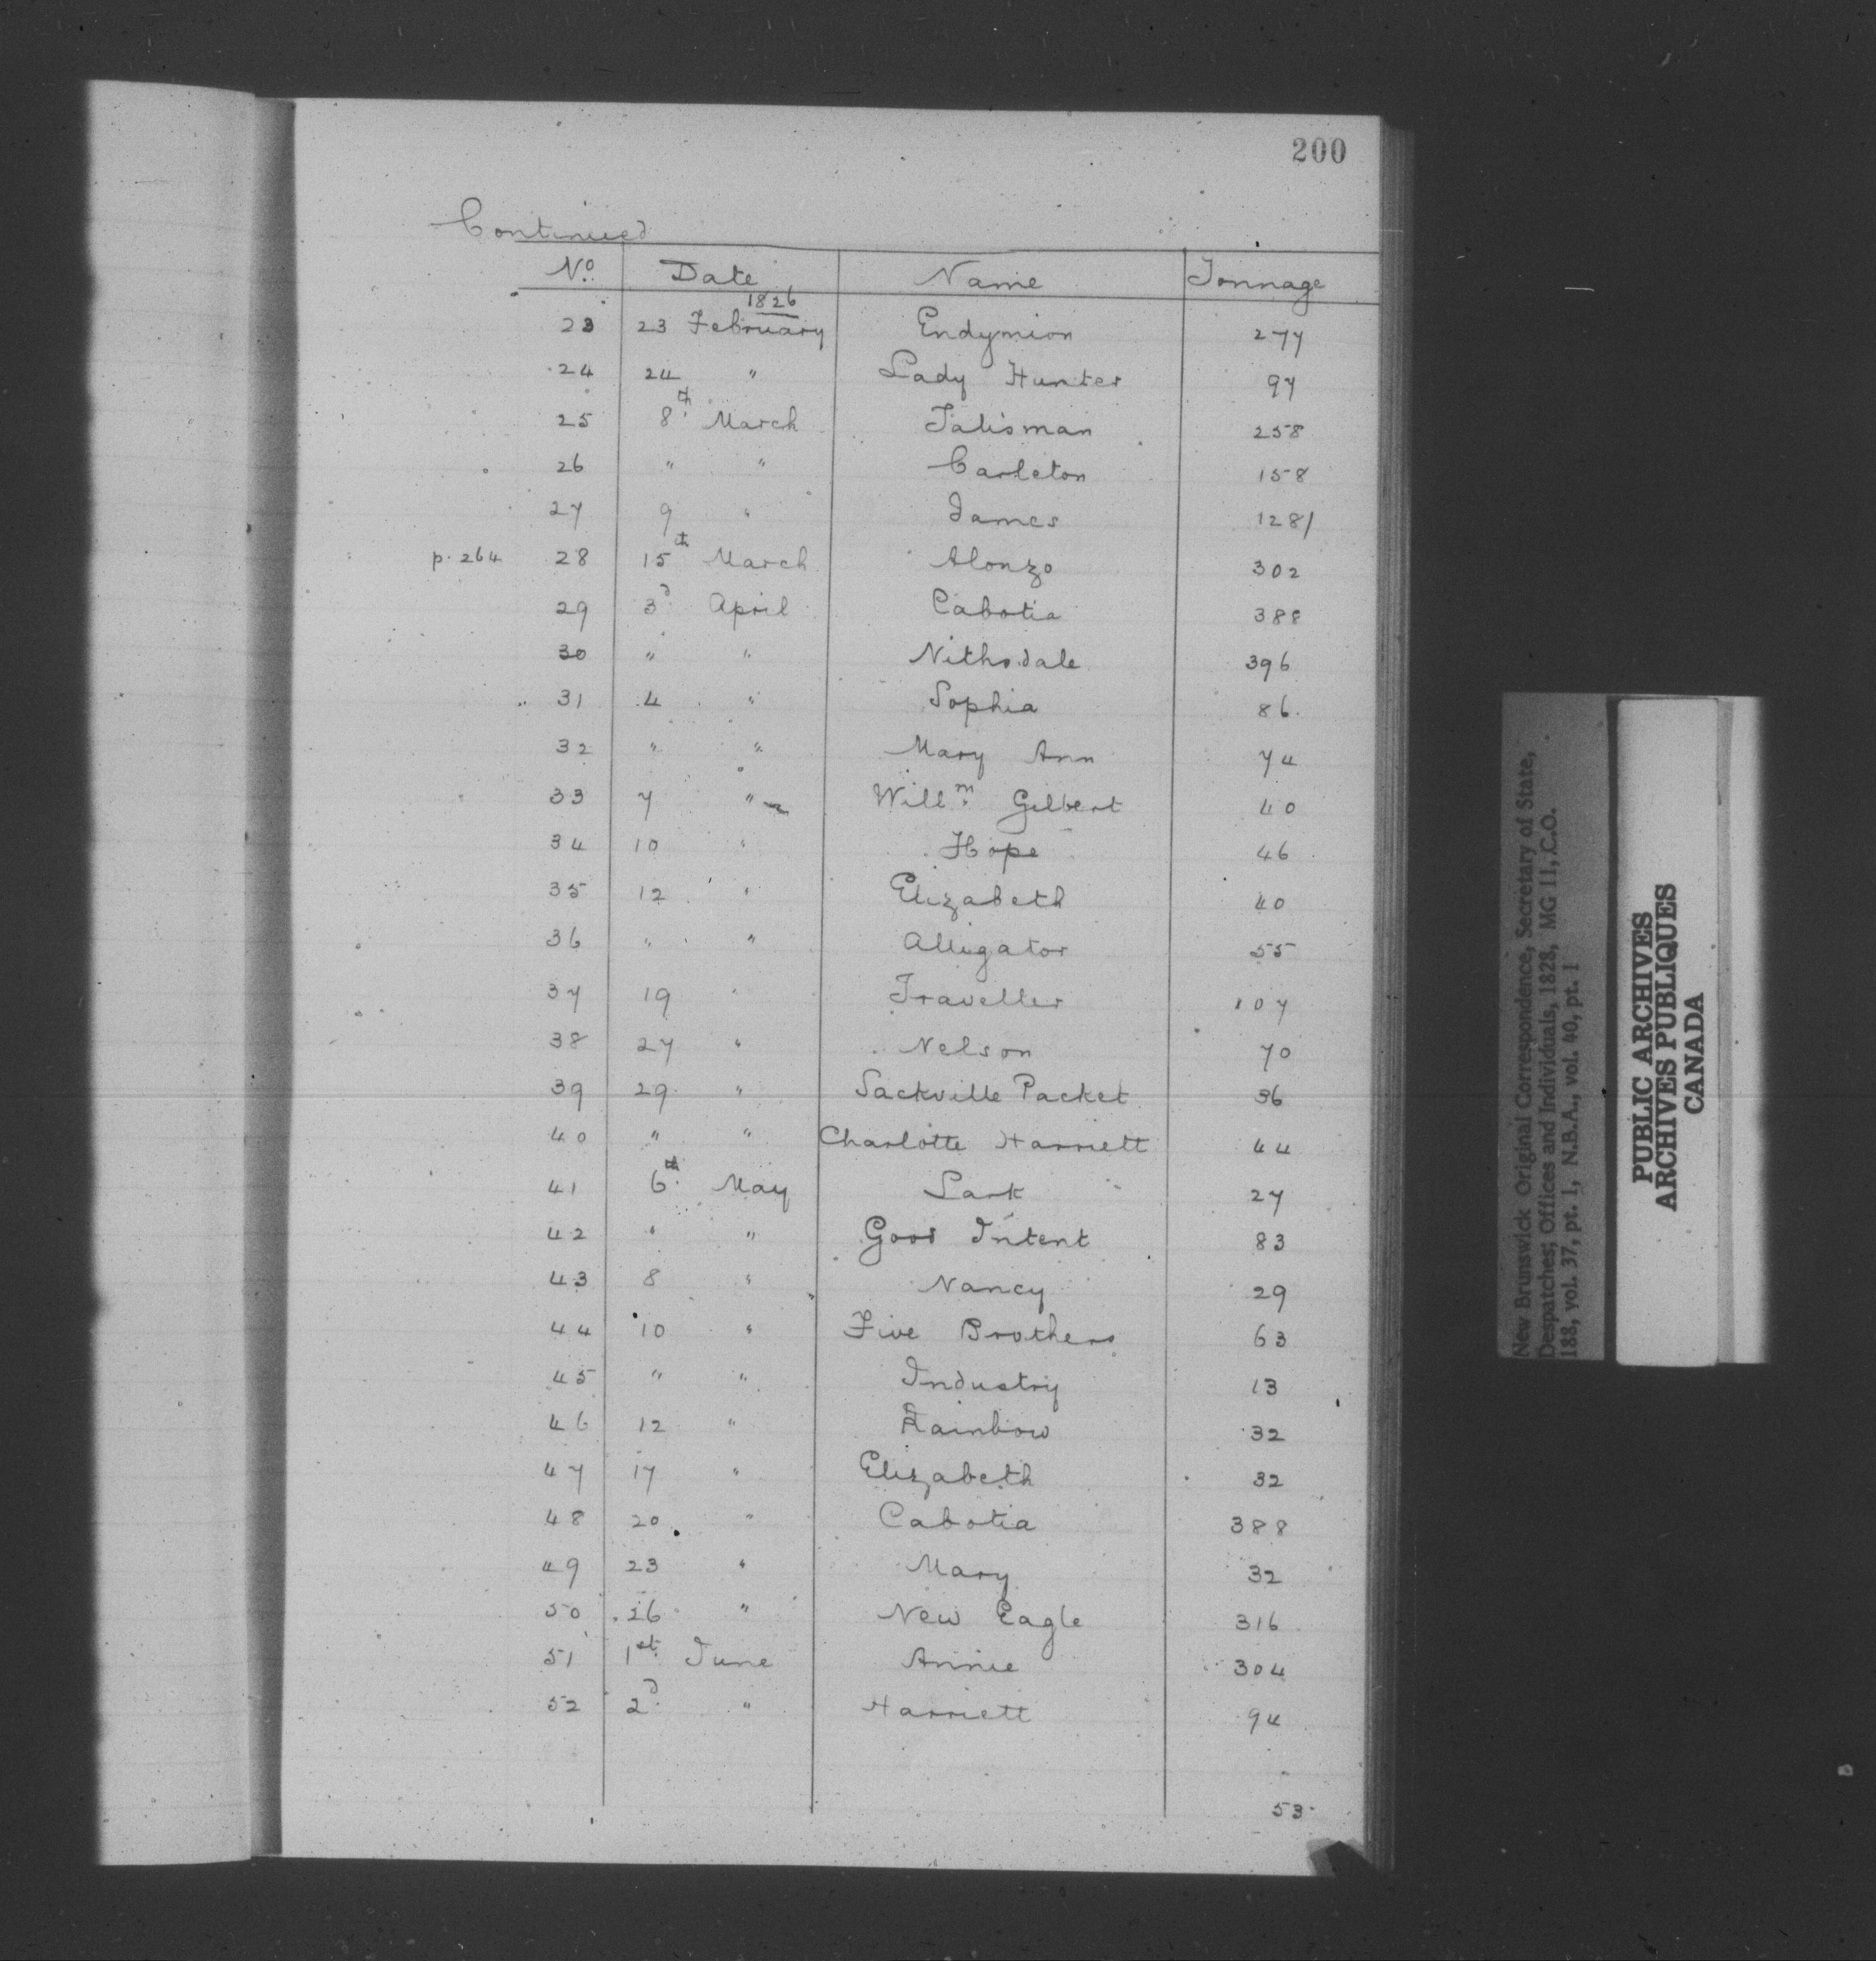 200
Continued
No. Date Name Tonnage
1826
23 23 February Endymion 277
24 24 " Lady Hunter 97
25 8th March Talisman 258
26 " " Carleton 158
27 9 " James 128/
p. 264 28 15th March Alonzo 302
29 3d April Cabotia 388
30 " " Nithsdale 396
31 4 " Sophia 86
32 " " Mary Ann 74
33 7 " Willm Gilbert 40
34 10 " Hope 46
35 12 " Elizabeth 40
36 " " Alligator 55
37 19 " Traveller 107
38 27 " Nelson 70
39 29 " Sackville Packet 36
40 " " Charlotte Harriett 44
41 6th May Lark 27
42 " " Good Intent 83
43 8 " Nancy 29
44 10 " Five Brothers 63
45 " " Industry 13
46 12 " Rainbow 32
47 17 " Elizabeth 32
48 20 " Cabotia 388
49 23 " Mary 32
50 26 " New Eagle 316
51 1st June Annie 304
52 2d " Harriett 94
53
New Brunswick Original Correspondence, Secretary of State,
Despatches; Offices and Individuals, 1828, MG 11, C.O.
188, vol. 37, pt. 1, N.B.A., vol. 40, pt. 1
PUBLIC ARCHIVES
ARCHIVES PUBLIQUES
CANADA